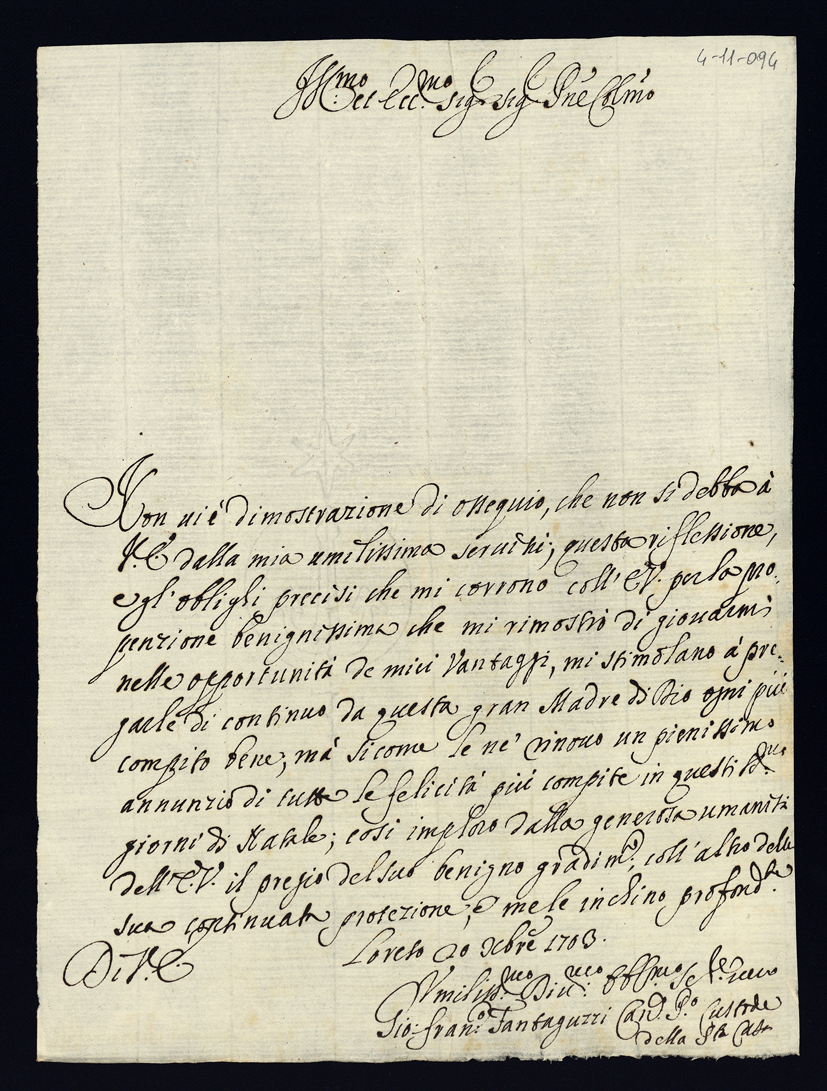 4-11-094
Ill:mo et Ecc:mo Sig.r Sig.r P'ne Col'mo
Non ui è dimostrazione di ossequio, che non si debba à
V. E. dalla mia umilissima seruitù; questa riflessione,
e gl'oblighi precisi che mi corrono coll'E.V. per la pro-
penzione benignissima che mi rimostrò di giouarmi
nelle opportunità de miei Vantaggi, mi stimolano à pre-
garle di continuo da questa gran Madre di Dio ogni più
compito bene; mà sicome le ne rinouo un pienissimo
annunzio di tutte le felicità più compite in questi S.mi
giorni di Natale; così imploro dalla generosa umanità
dell'E.V. il pregio del suo benigno gradim.to, coll'altro della
sua continuata protezione, e me le inchino profond.te
Loreto 20 Xbre 1703.
Di V. E.
Vmiliss.mo Diu.mo Obb.mo Se.re uero
Gio: Fran.o Fantaguzzi Can.co P.o Custode
della S.ta Casa